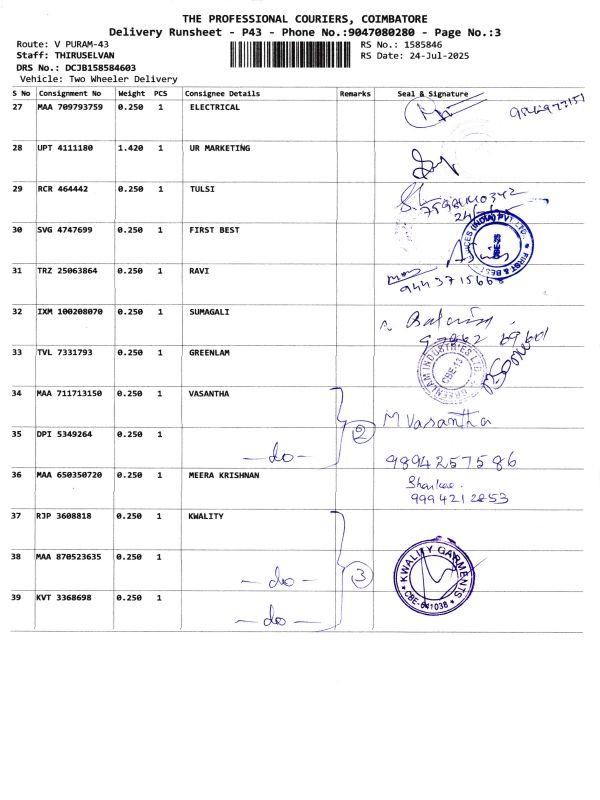 THE PROFESSIONAL COURIERS, COIMBATORE
Delivery Runsheet - P43 - Phone No.:9047080280 - Page No.:3
Route: V PURAM-43 RS No.: 1585846
Staff: THIRUSELVAN RS Date: 24-Jul-2025
DRS No.: DCJB158584603
Vehicle: Two Wheeler Delivery
S No Consignment No Weight PCS Consignee Details Remarks Seal & Signature
27 MAA 709793759 0.250 1 ELECTRICAL
28 UPT 4111180 1.420 1 UR MARKETING
29 RCR 464442 0.250 1 TULSI
30 SVG 4747699 0.250 1 FIRST BEST
31 TRZ 25063864 0.250 1 RAVI
944 3715668
32 IXM 100208070 0.250 1 SUMAGALI
33 TVL 7331793 0.250 1 GREENLAM
GREENLAM INDUSTRIES LTD. CBE-13
34 MAA 711713150 0.250 1 VASANTHA
M Vasantha
35 DPI 5349264 0.250 1 -do- 2
9894257586
36 MAA 650350720 0.250 1 MEERA KRISHNAN
9994212853
37 RJP 3608818 0.250 1 KWALITY
38 MAA 870523635 0.250 1 -do- 3
KWALITY GARMENTS CBE-641038
39 KVT 3368698 0.250 1 -do-